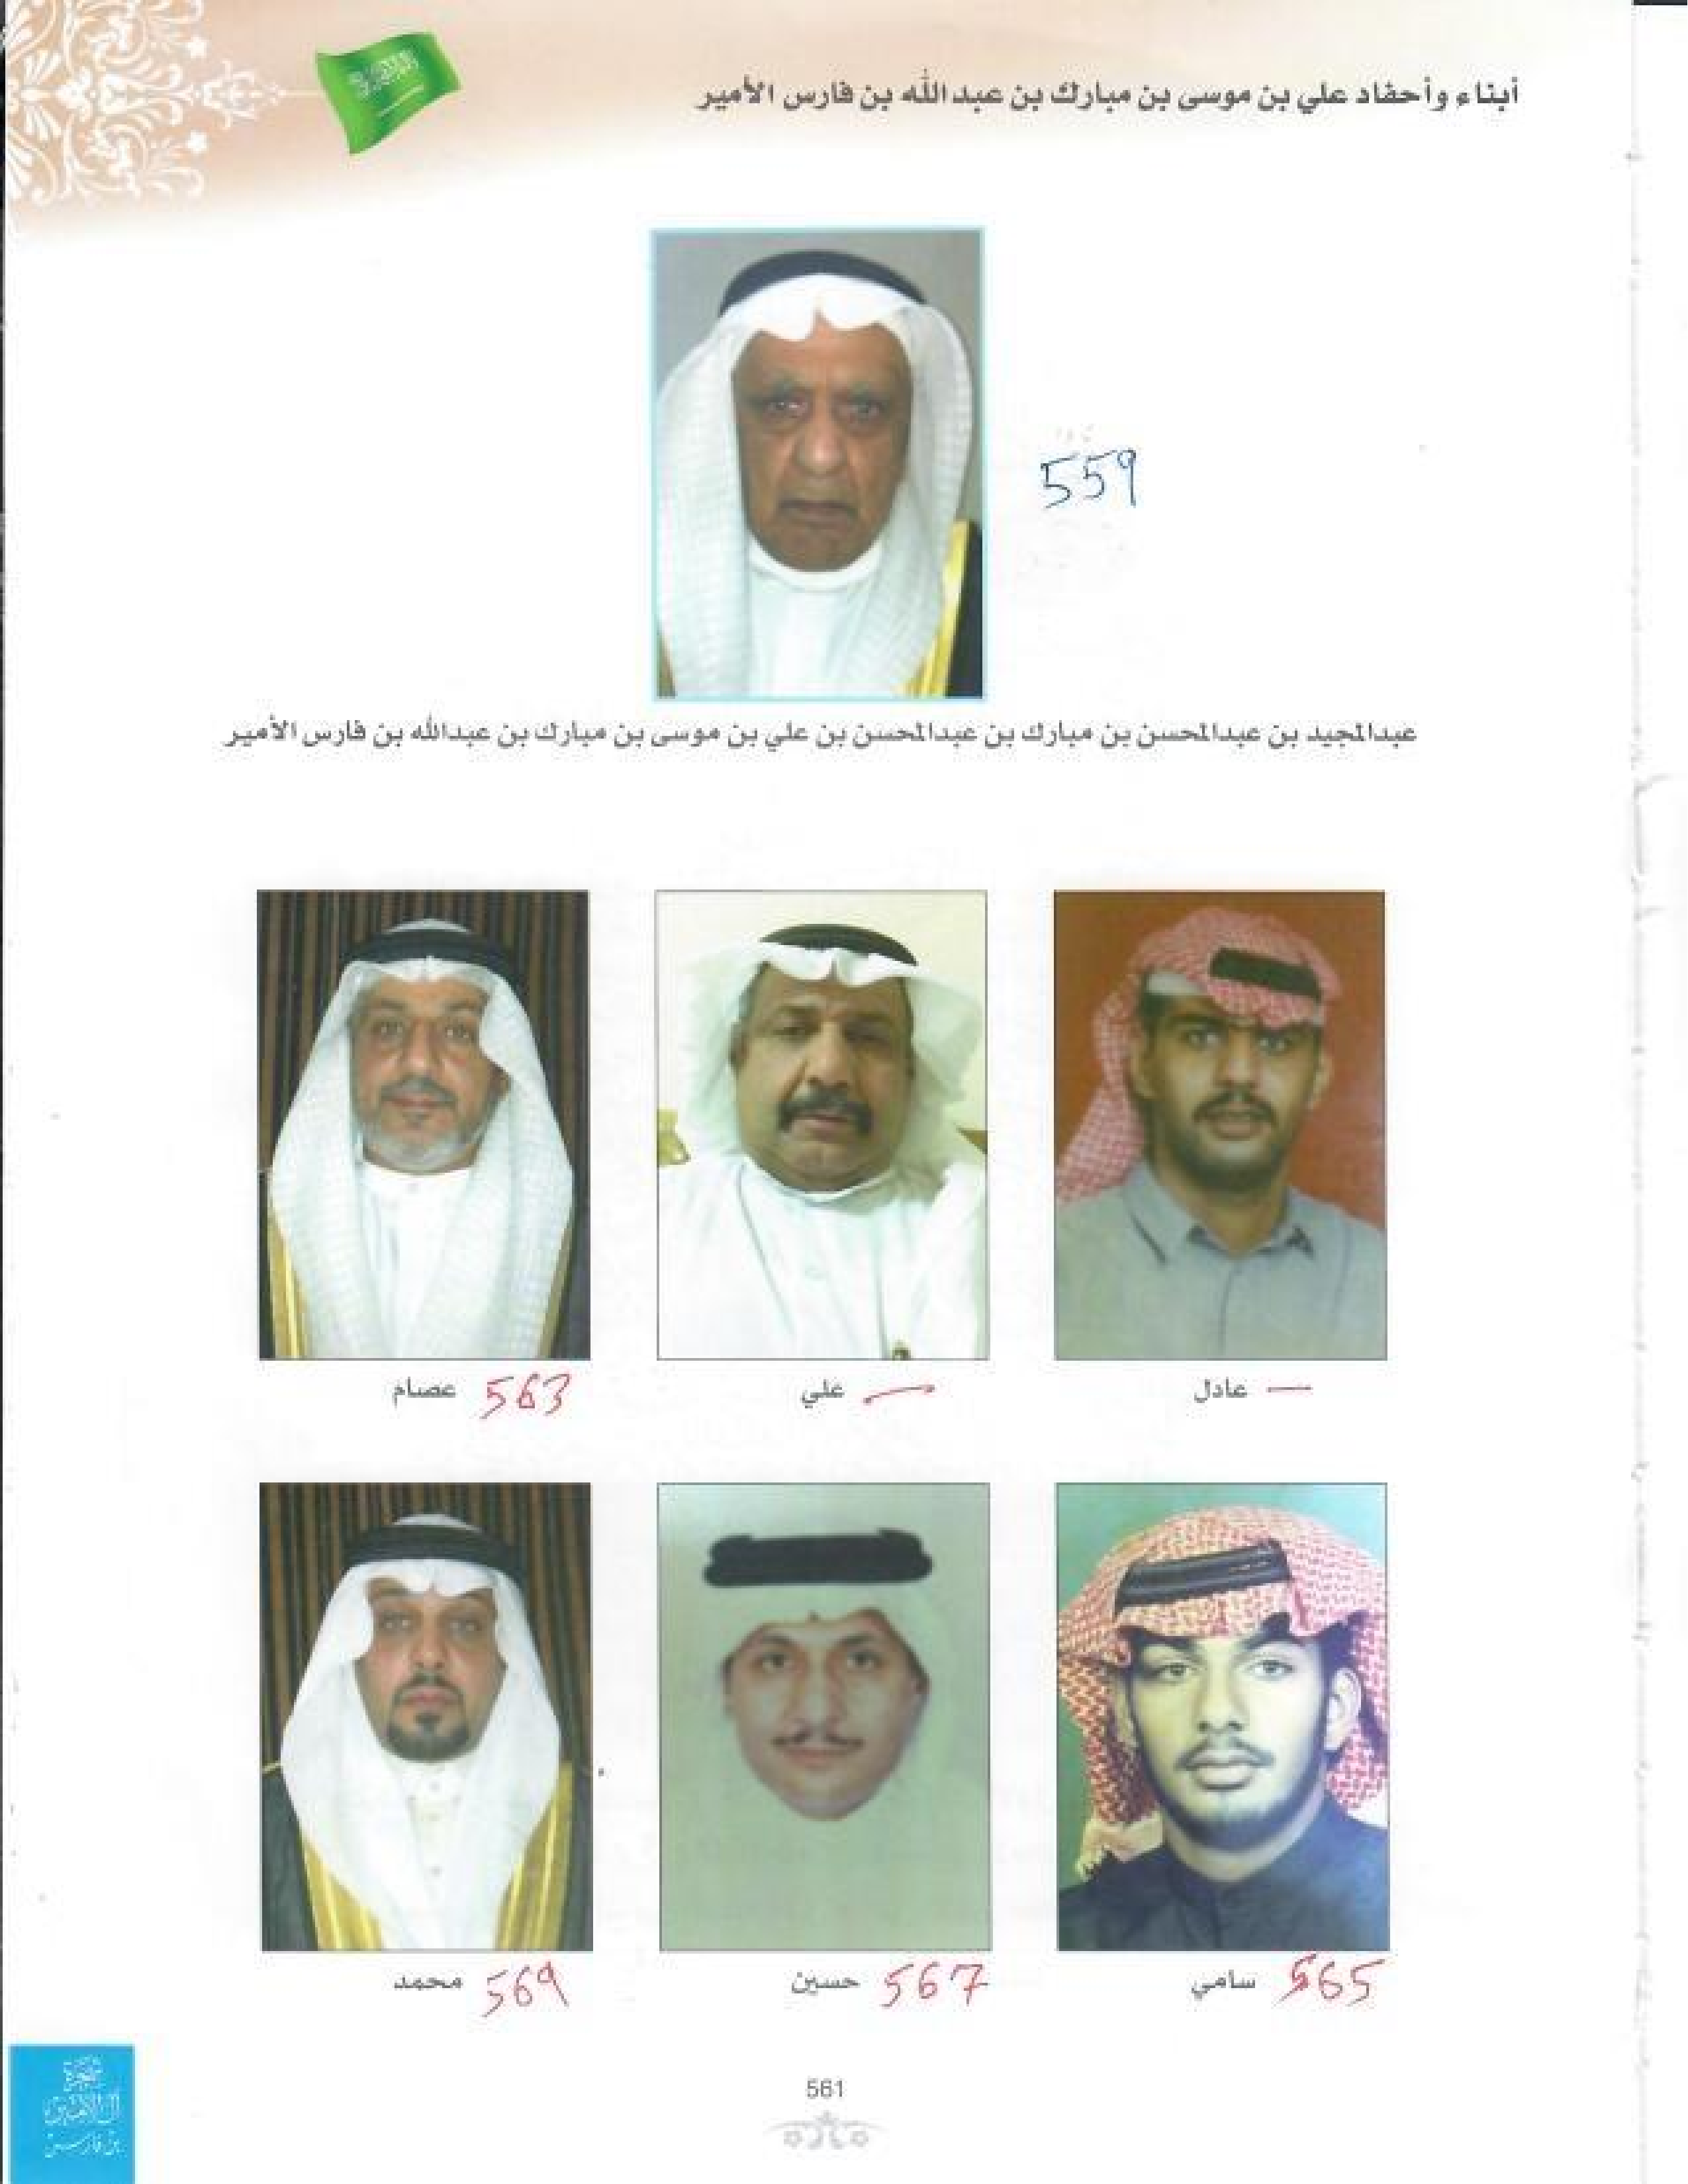 أبناء وأحفاد علي بن موسى بن مبارك بن عبد الله بن فارس الأمير
559
عبدالمجيد بن عبدالمحسن بن مبارك بن عبدالمحسن بن علي بن موسى بن مبارك بن عبدالله بن فارس الأمير
عادل
علي
563 عصام
565 سامي
567 حسين
569 محمد
561
شجرة
آل الأمير
بن فارس